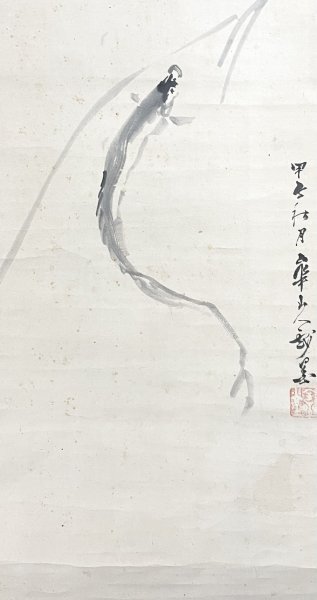 甲午秋月華山人戯墨